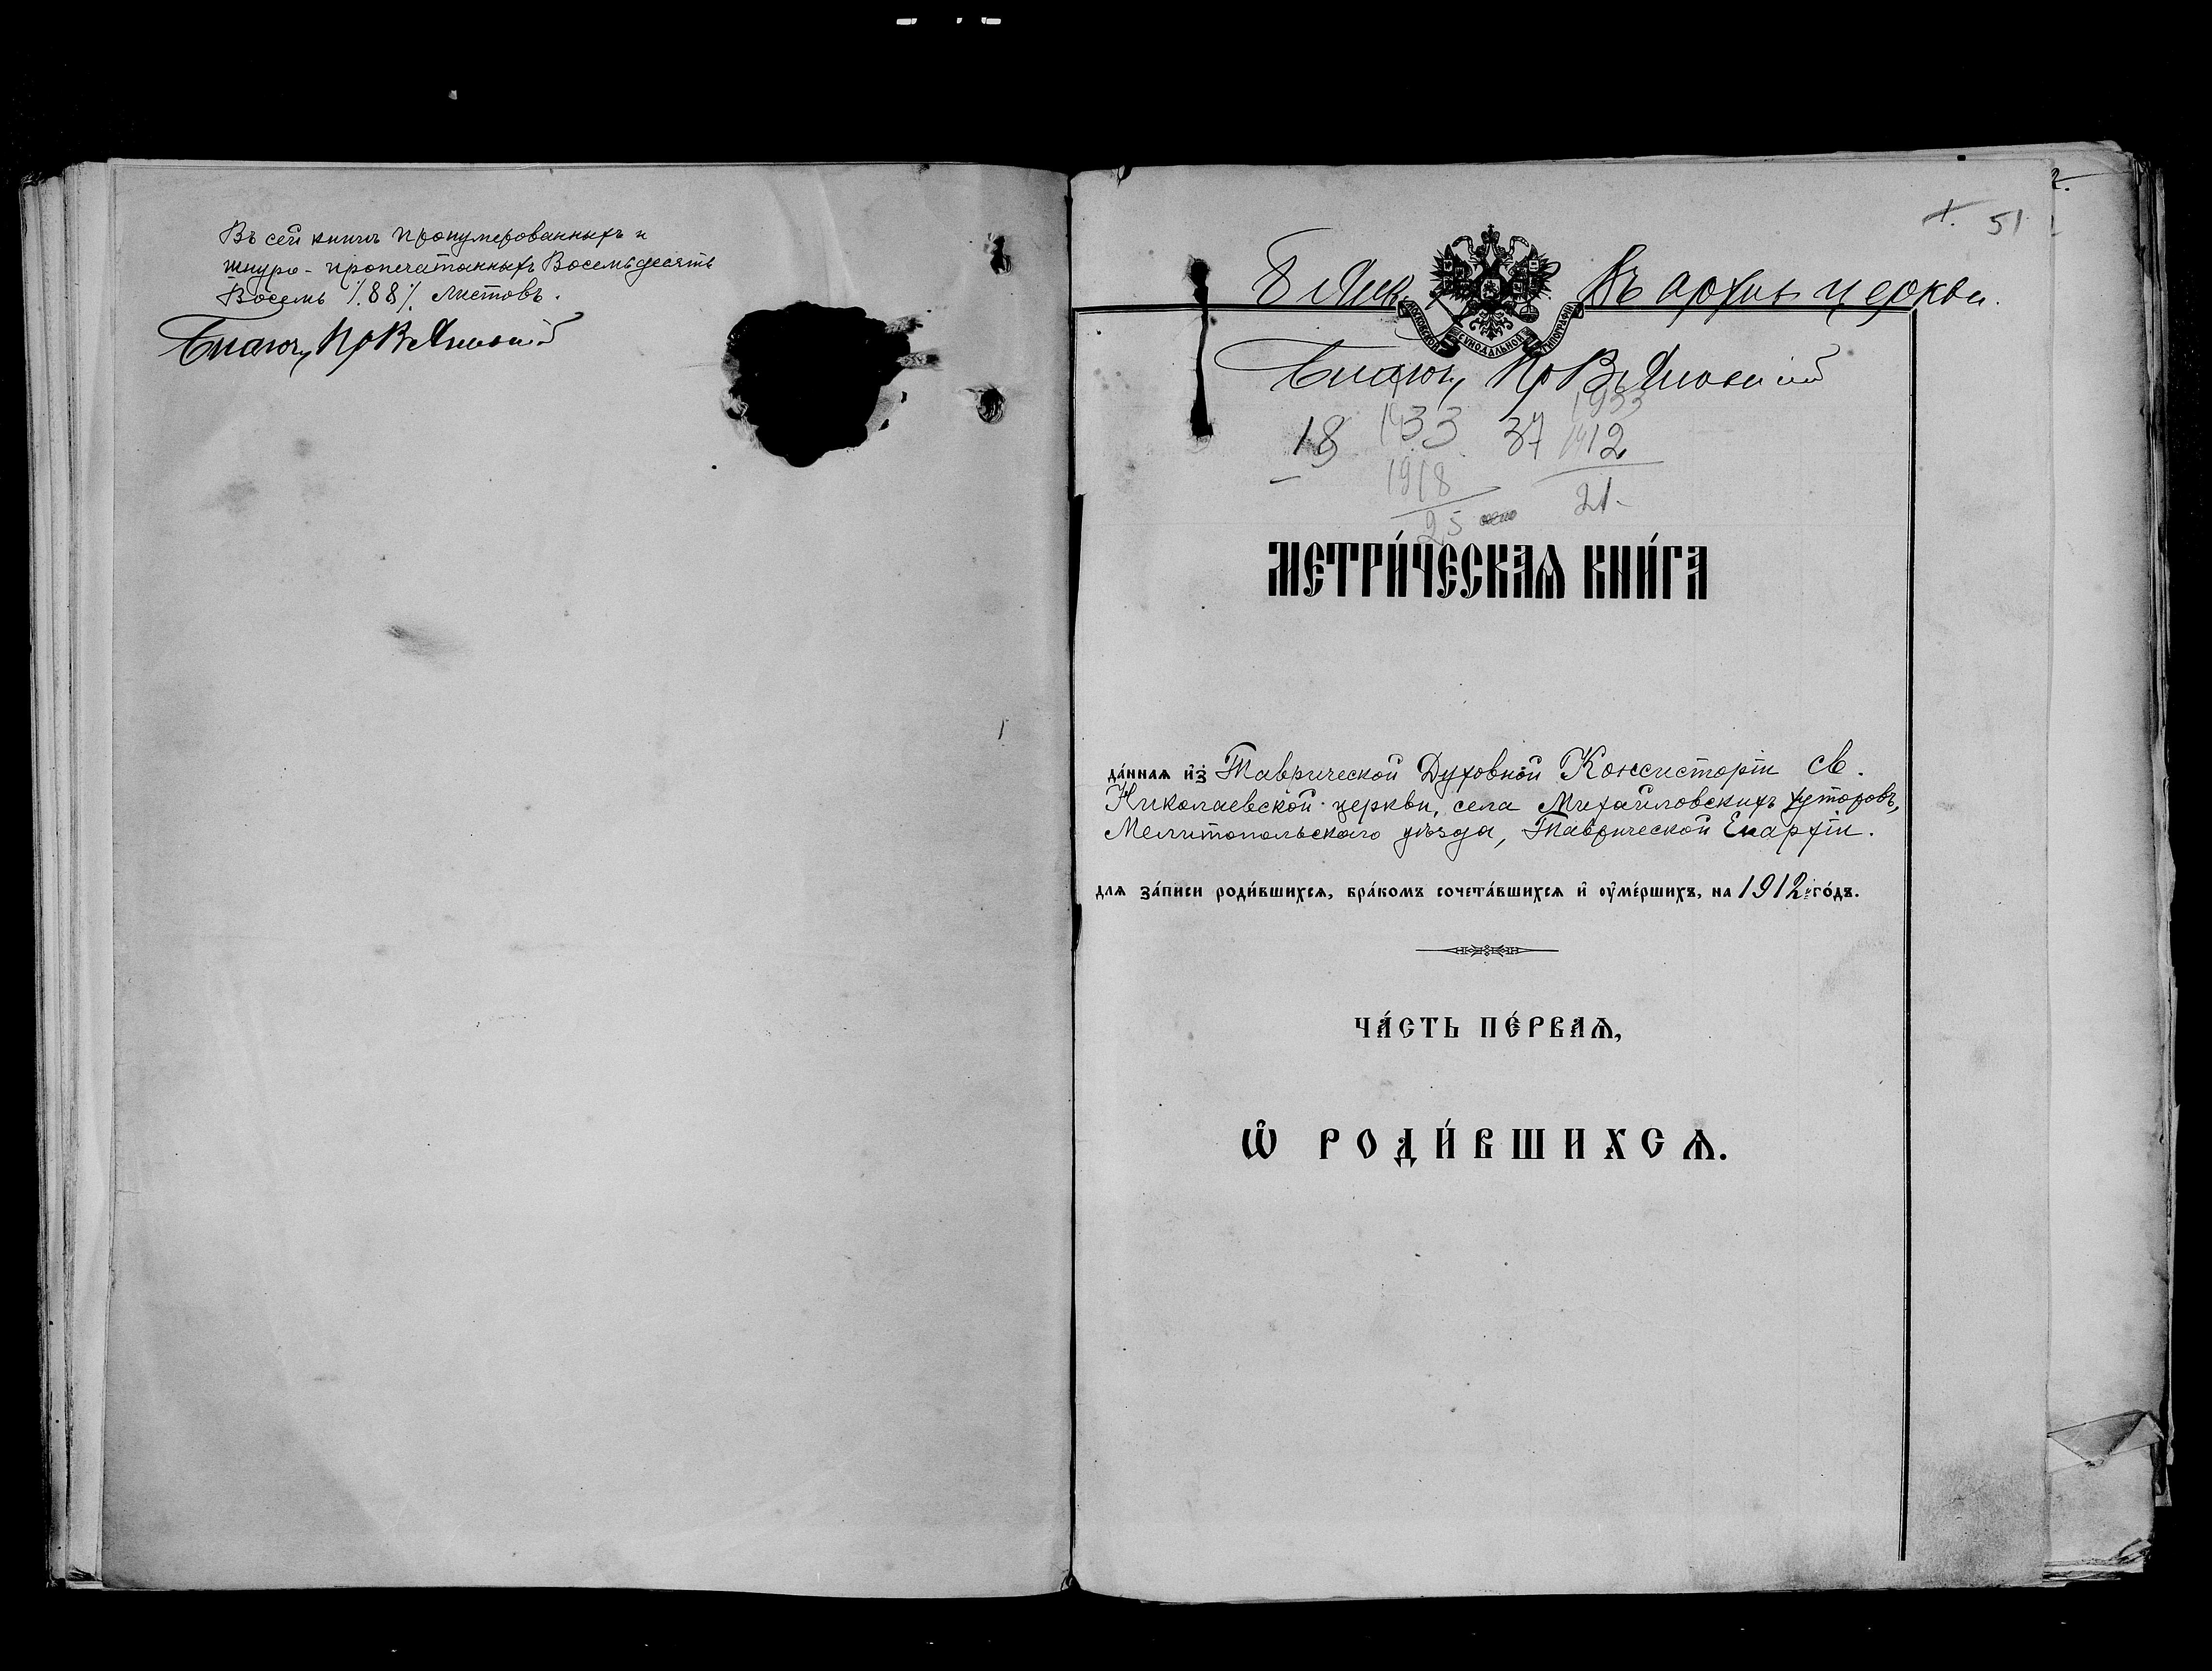 Въ сей книгѣ пронумерованныхъ и
шнуро-пропечатанныхъ Восемьдесятъ
Восемь /.88/. листовъ.
51
Въ архивъ церкви.
МОСКОВСКОЙ СѴНОДАЛЬНОЙ ТИПОГРАФІИ
1933
1933 37 1912
18
1918 21
25
МЕТРИ́ЧЕСКАѦ КНИ́ГА
да́ннаѧ и҆з̾ Таврической Духовной Консисторіи Св.
Николаевской церкви, села Михайловскихъ хуторовъ,
Мелитопольскаго уѣзда, Таврической Епархіи.
длѧ за́писи роди́вшихсѧ, бра́комъ сочета́вшихсѧ и҆ ѹ҆ме́ршихъ, на 1912 го́дъ.
ЧА́СТЬ ПЕ́РВАѦ,
Ѡ҆ РОДИ́ВШИХСѦ.